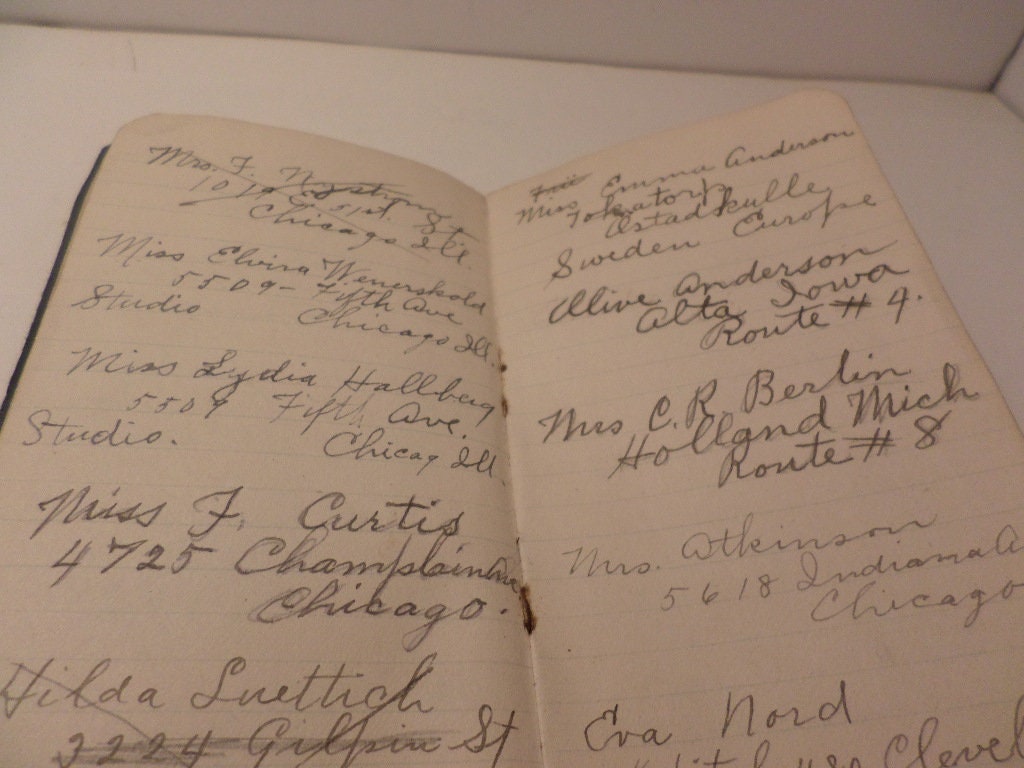 Mrs. F.
Chicago Ill.
Miss Elvira
5509 - Fifth Ave
Studio Chicago Ill.
Miss Lydia Hallberg
5509 Fifth Ave.
Studio. Chicago Ill
Miss F. Curtis
4725 Champlain Ave
Chicago.
Hilda Luettich
2224 Gilpin St
Miss Emma Anderson
Sweden Europe
Olive Anderson
Alta Iowa
Route # 4.
Mrs C.R Berlin
Holland Mich
Route # 8
Mrs. Atkinson
5618 Indiana A
Chicago
Eva Nord
Clevel